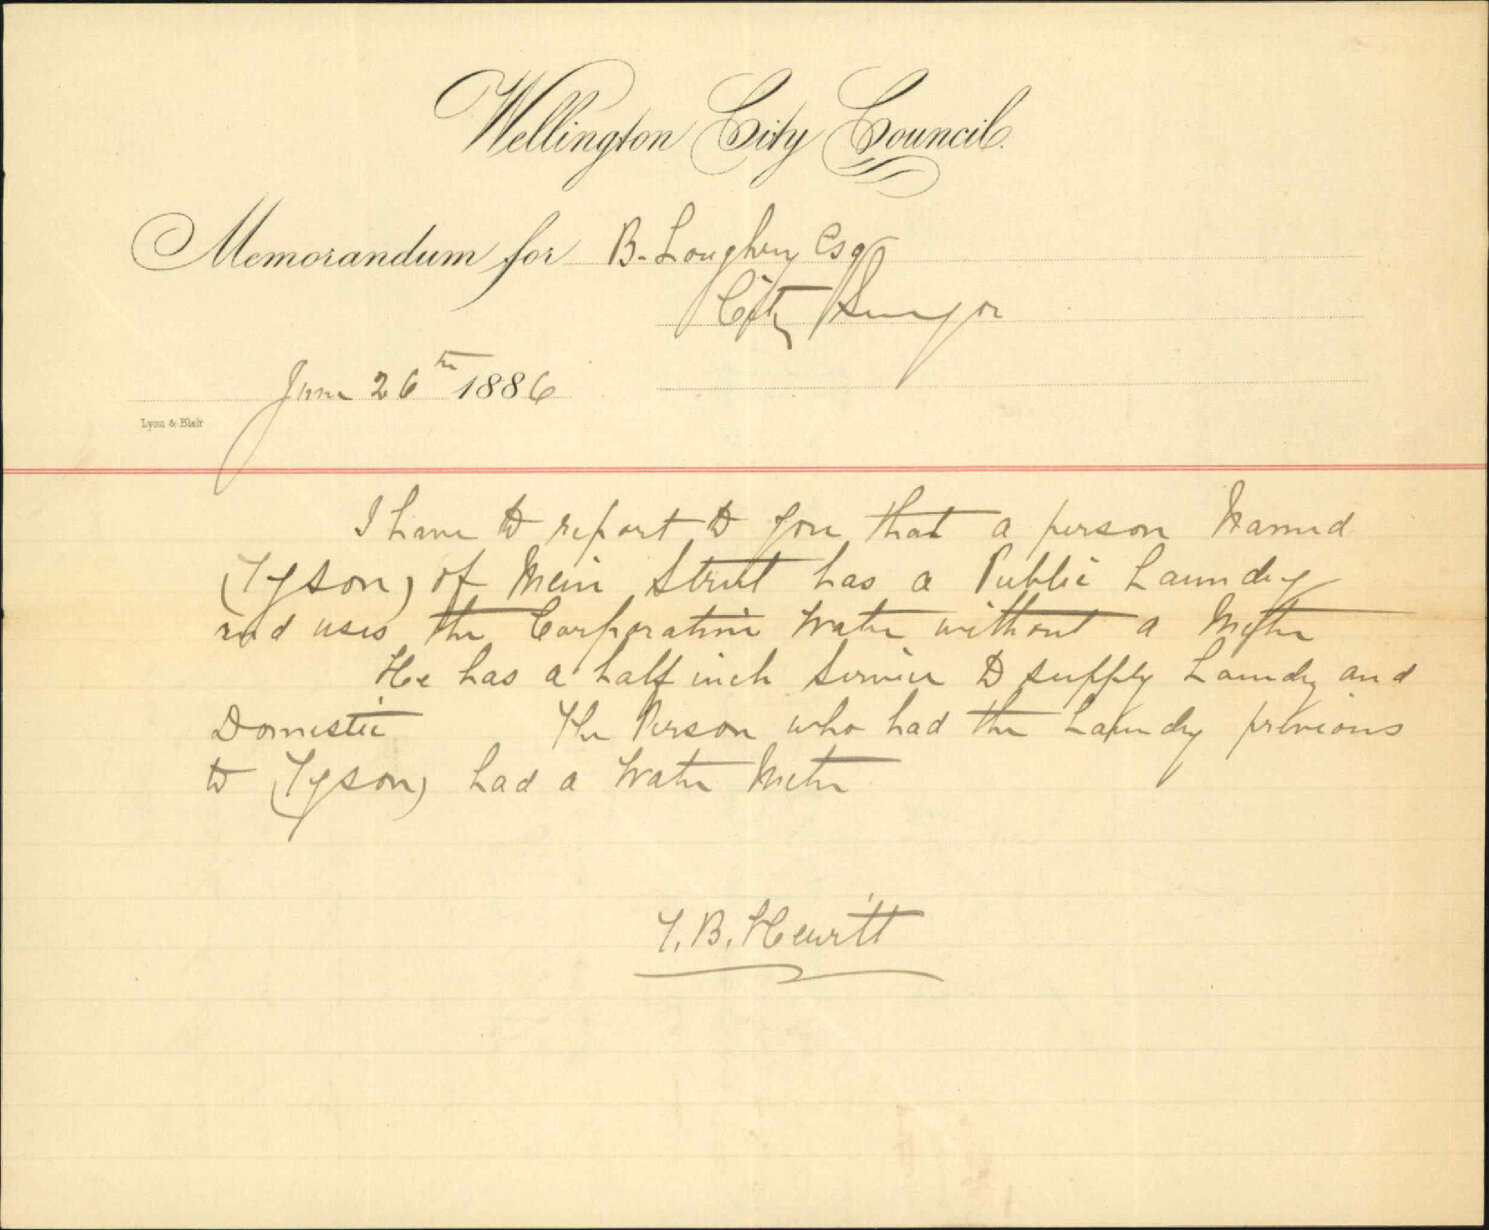 Wellington City Council.
Memorandum for B. Loughrey Esq
City Surveyor
June 26th 1886
Lyon & Blair
I have to report to you that a person Named
(Tyson) of Mein Street has a Public Laundry
and uses the Corporation Water without a Meter
He has a half inch service to supply Laundry and
Domestic The Person who had the Laundry previous
to (Tyson) had a Water Meter
T. B. Hewitt